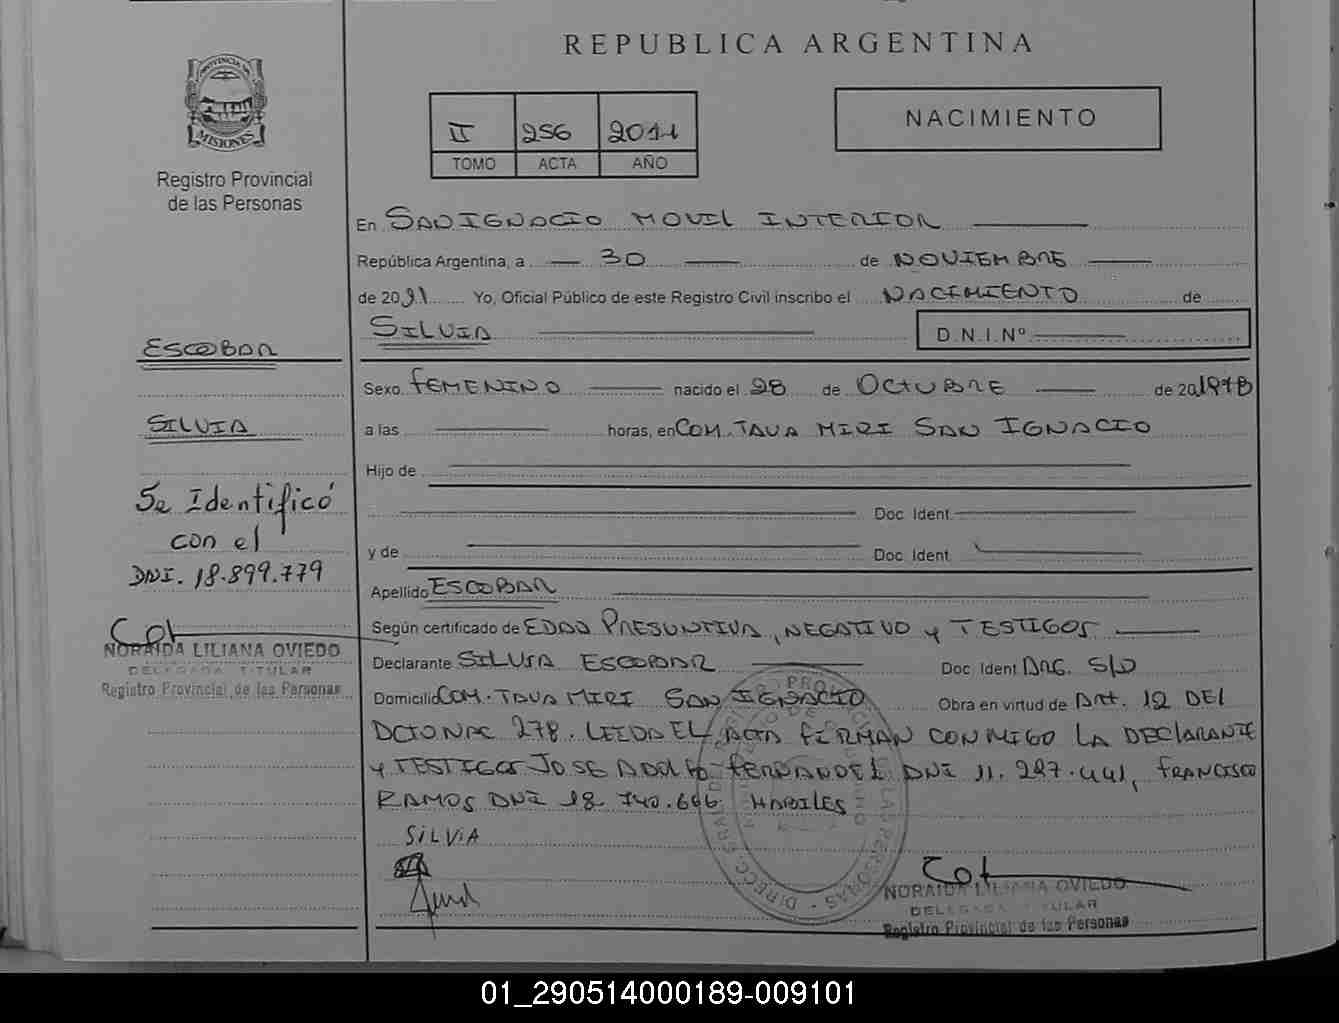 REPUBLICA ARGENTINA
PROVINCIA DE
MISIONES
Registro Provincial
de las Personas
II 256 2011
TOMO ACTA AÑO
NACIMIENTO
En SAN IGNACIO MOVIL INTERIOR
República Argentina, a 30 de NOVIEMBRE
de 2011 Yo, Oficial Público de este Registro Civil inscribo el NACIMIENTO de
SILVIA D.N.I.Nº
ESCOBAR
SILVIA
Se Identificó
con el
DNI. 18.899.779
NORAIDA LILIANA OVIEDO
DELEGADA TITULAR
Registro Provincial de las Personas
Sexo FEMENINO nacido el 28 de OCTUBRE de 201978
a las horas, en COM. TAVA MIRI SAN IGNACIO
Hijo de
Doc. Ident.
y de Doc. Ident.
Apellido ESCOBAR
Según certificado de EDAD PRESUNTIVA, NEGATIVO y TESTIGOS
Declarante SILVIA ESCOBAR Doc. Ident ARG. S/D
Domicilio COM. TAVA MIRI SAN IGNACIO Obra en virtud de Art. 12 DEL
DCTO NAC 278. LEIDA EL ACTA FIRMAN CONMIGO LA DECLARANTE
y TESTIGOS JOSE ADOLFO FERNANDEZ DNI 11.287.441, FRANCISCO
RAMOS DNI 18.740.666 HABILES
SILVIA
NORAIDA LILIANA OVIEDO
DELEGADA TITULAR
Registro Provincial de las Personas
01_290514000189-009101